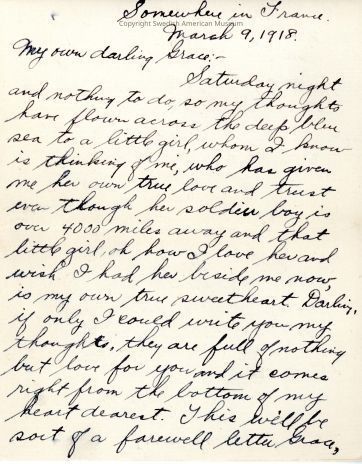 Somewhere in France.
Copyright Swedish American Museum
March 9, 1918.
My own darling Grace;-
Saturday night
and nothing to do, so my thoughts
have flown across the deep blue
sea to a little girl, whom I know
is thinking of me, who has given
me her own true love and trust
even though her soldier boy is
over 4000 miles away and that
little girl, oh how I love her and
wish I had her beside me now,
is my own true sweetheart. Darling,
if only I could write you my
thoughts, they are full of nothing
but love for you and it comes
right from the bottom of my
heart dearest. This will be
sort of a farewell letter Grace,